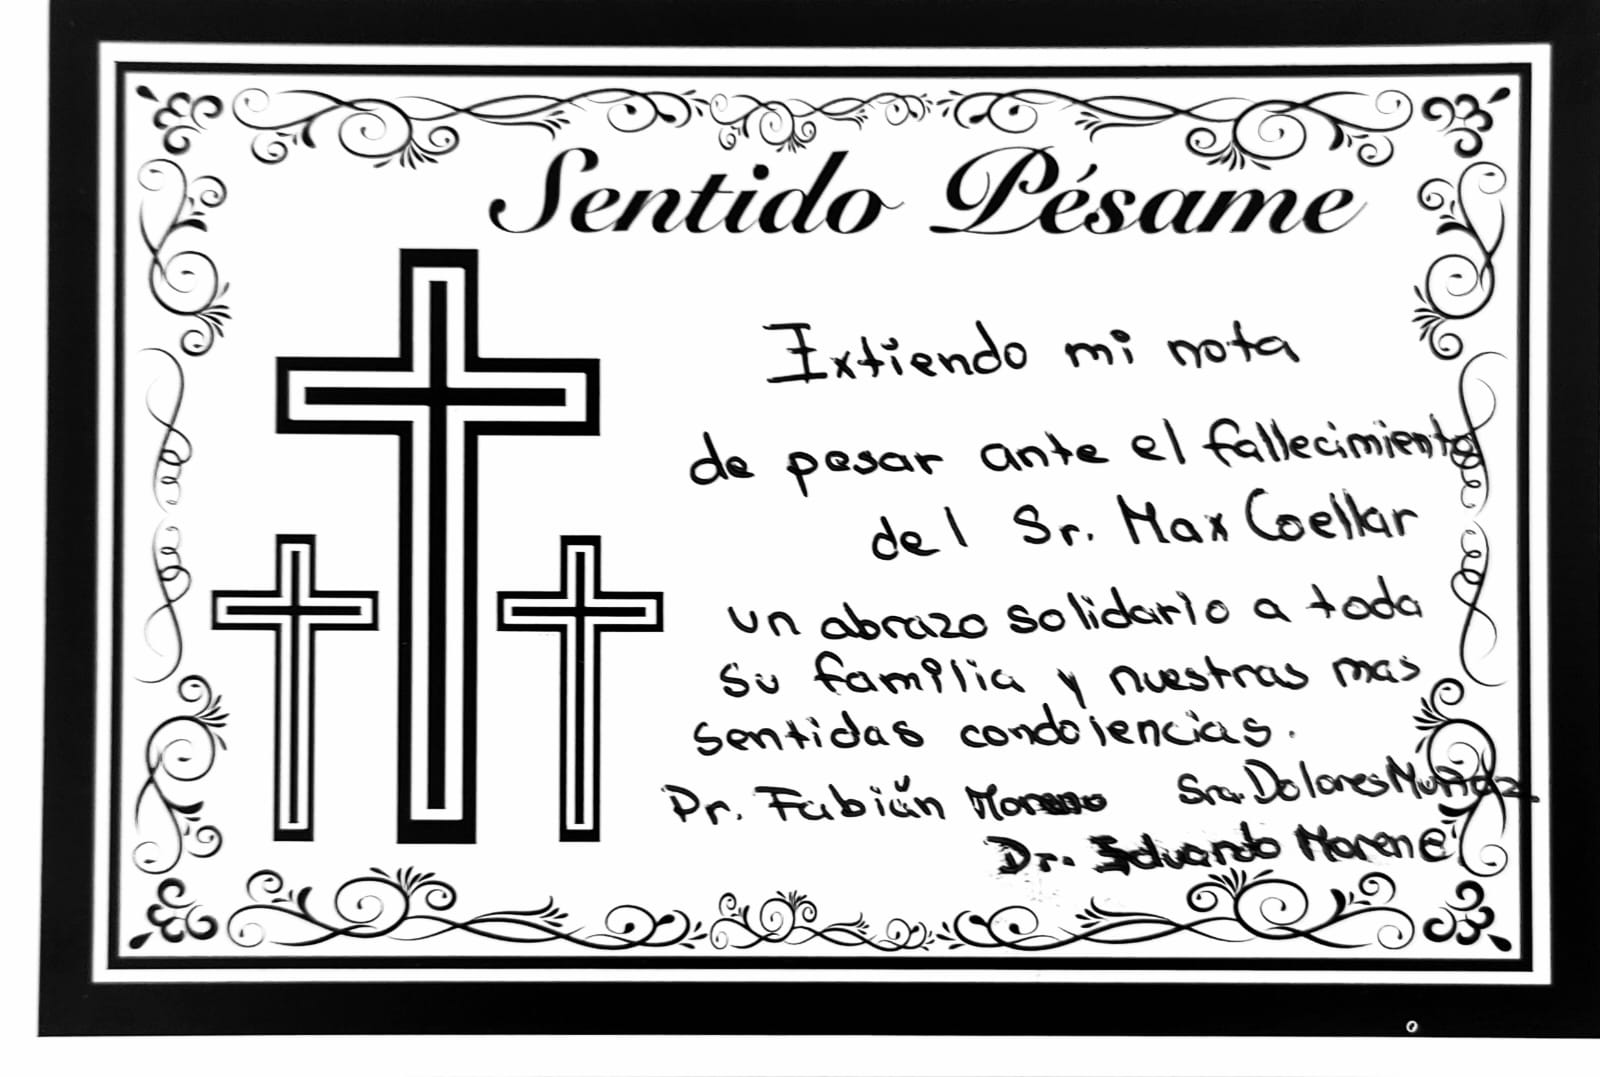 Sentido Pésame
Extiendo mi nota
de pesar ante el fallecimiento
del Sr. Max Coellar
un abrazo solidario a toda
su familia y nuestras mas
sentidas condolencias.
Dr. Fabián Moreno Sra. Dolores Muñoz
Dr. Eduardo Moreno